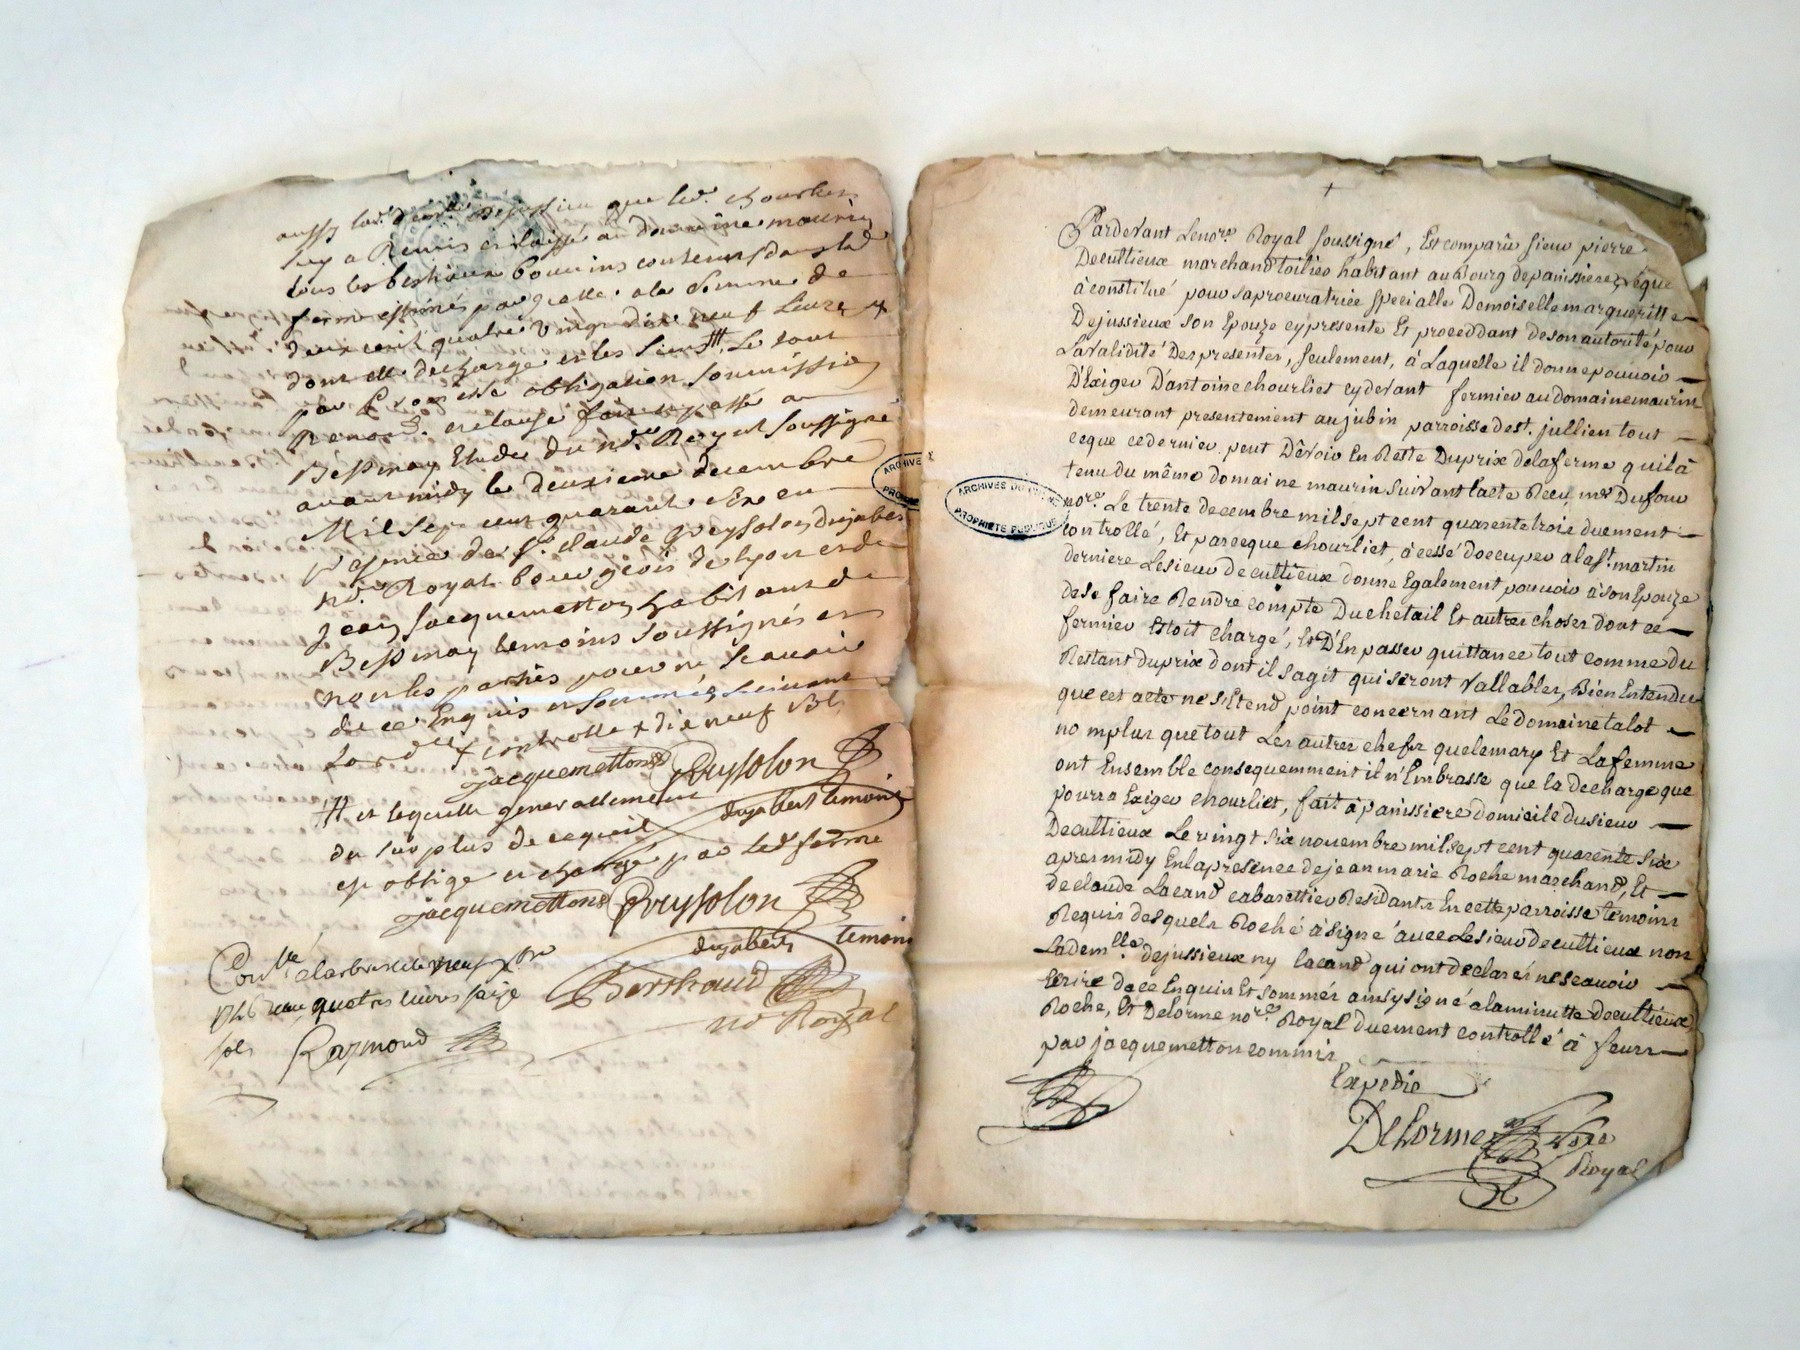 aussy lad. dem.lle Dejussieu que led. chourliet
luy a Remis et laissé au domaine maurin
tous les bestiaux bouvins contenus dans lad.
ferme estimés par grosse a la Somme de
deux cent quatre vingt dix neuf Livres
dont elle decharge et les siens ++. Le tout
par Promesse obligation Soumission
Renon.on et clause fait et passé au
Bespinay Etude du no.re Royal Soussigné
avant midy le deuxieme decembre
Mil sept cent quarante Six en
presence de S.r claude Greysolon dujabert
no.re Royal bourgeois de lyon et de
Jean Jacquemetton habitant de
Bespinay temoins soussignés et
non les parties pour ne Scavoir
de ce Enquis et Sommés Suivant
Lord.ce + controlle + dix neuf
Jacquemetton Greysolon
++ et le quitte generallement
dujabert temoin
du surplus de ce quoil
est obligé et chargé par led. ferme
Jacquemetton Greysolon
dujabert temoin
Con.lé
Berthaud
no Royal
sols Raymond
+
Pardevant Le no.re Royal soussigné, Est comparû sieur pierre
Decultieux marchand toilier habitant au Bourg de panissieres, lequel
à constitué pour sa procuratrice specialle Demoiselle margueritte
Dejussieux son Epouze cy presente Et proceddant de son autorité pour
La validité Des presentes, seulement, à Laquelle il donne pouvoir
D'Exiger D'antoine chourliet cydevant fermier au domaine maurin
demeurant presentement au jubin parroisse de st. jullien tout
ce que ce dernier peut Dêvoir En Reste Du prix de la ferme quil à
tenu du même domaine maurin suivant l'acte Reçu me. Dufour
no.re Le trente decembre mil sept cent quarente trois duement
controllé, Et parceque chourliet, à cessé doccuper a la st. martin
derniere Le sieur decultieux donne Egalement pouvoir à son Epouze
de se faire Rendre compte Du chetail Et autres choses dont ce
fermier Estoit chargé, Et D'En passer quittance tout comme du
Restant du prix dont il sagit qui seront Vallables, Bien Entendu
que cet acte ne s'Etend point concernant Le domaine talot
no mplus que tout Les autres chefs que le mary Et La femme
ont Ensemble consequemment il n'Embrasse que la decharge que
pourra Exiger chourliet, fait à panissiere domicile du sieur
Decultieux Le vingt six novembre mil sept cent quarente six
apres midy En la presence de jean marie Roche marchand, Et
de claude Lacand cabarettier Residants En cette parroisse temoins
Requis desquels Roche à signé avec Le sieur decultieux non
La dem.lle dejussieux ny lacand qui ont declarés ne scavoir
Ecrire de ce Enquis Et sommés ainsy signé a la minutte decultieux
Roche, Et Delorme no.re Royal duement controllé à feurs
par jacquemetton commis
Expedié
Delorme no.re
Royal
ARCHIVES DU RHÔNE
PROPRIÉTÉ PUBLIQUE